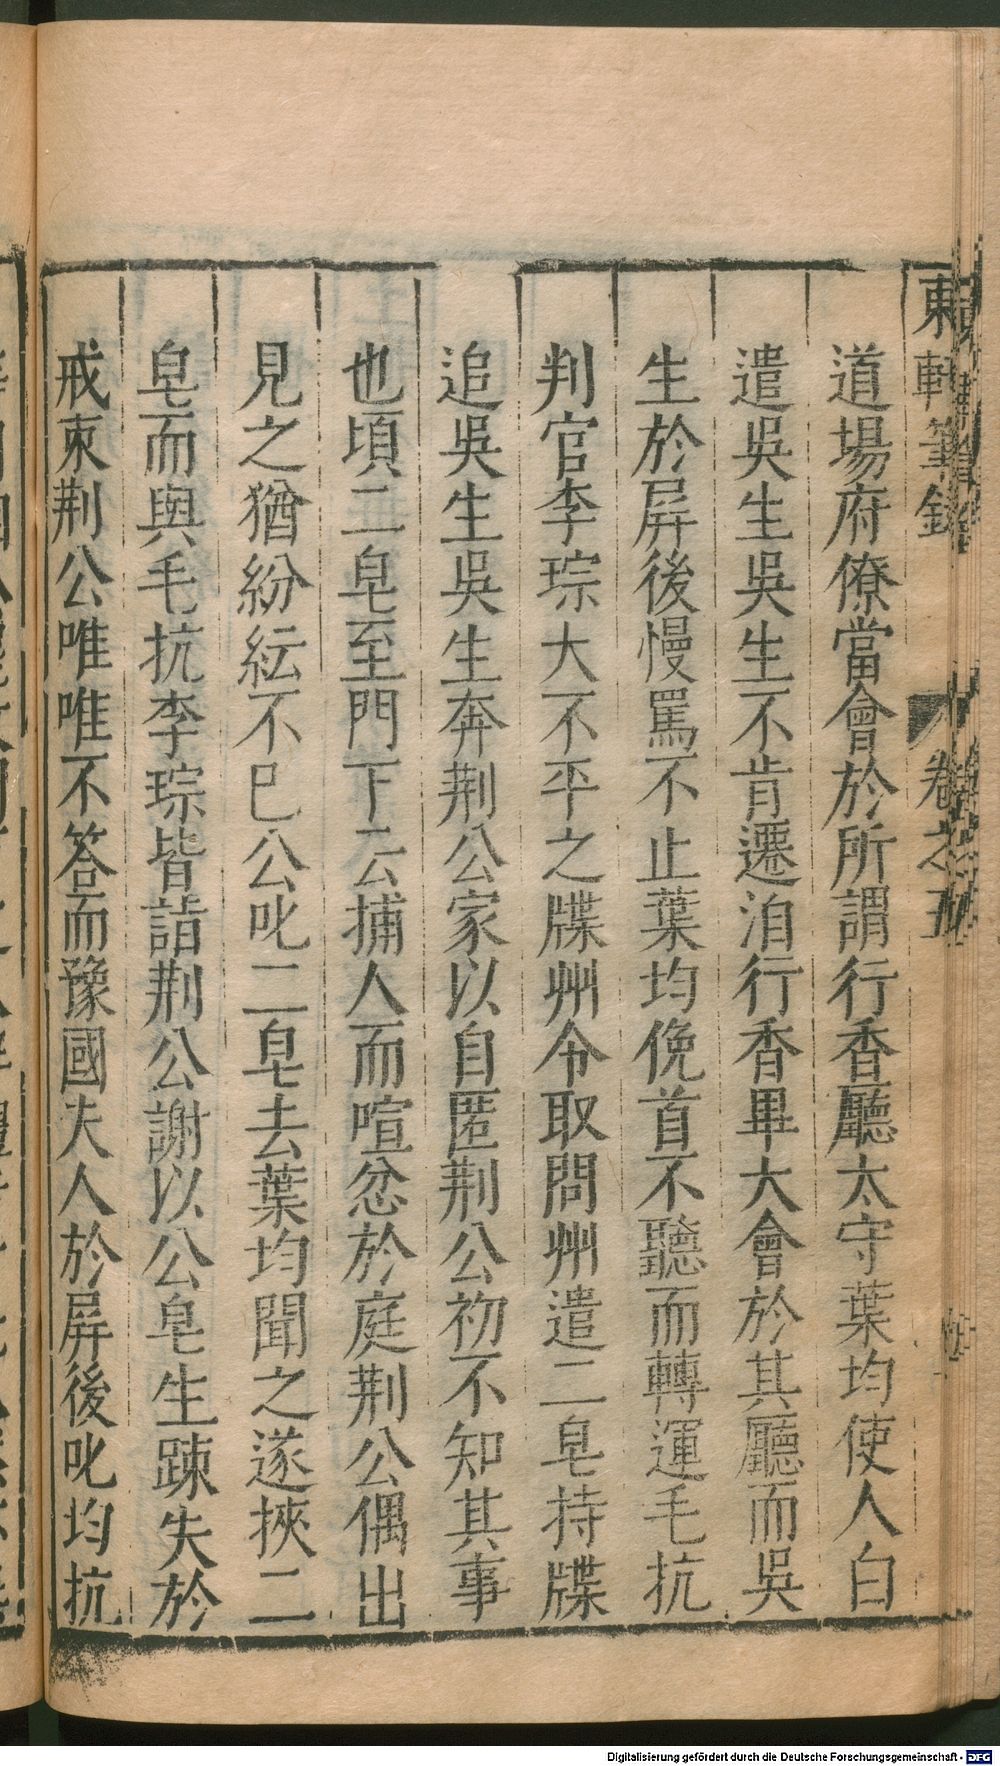 東軒筆錄 卷之五
道場府僚當會於所謂行香廳太守葉均使人白
遣吳生吳生不肯遷洎行香畢大會於其廳而吳
生於屏後慢罵不止葉均俛首不聽而轉運毛抗
判官李琮大不平之牒州令取問州遣二皂持牒
追吳生吳生奔荆公家以自匿荆公初不知其事
也頃二皂至門下云捕人而喧忿於庭荆公偶出
見之猶紛紜不巳公叱二皂去葉均聞之遂挾二
皂而與毛抗李琮皆詣荆公謝以公皂生踈失於
戒朿荆公唯唯不答而豫國夫人於屏後叱均抗
Digitalisierung gefördert durch die Deutsche Forschungsgemeinschaft - DFG